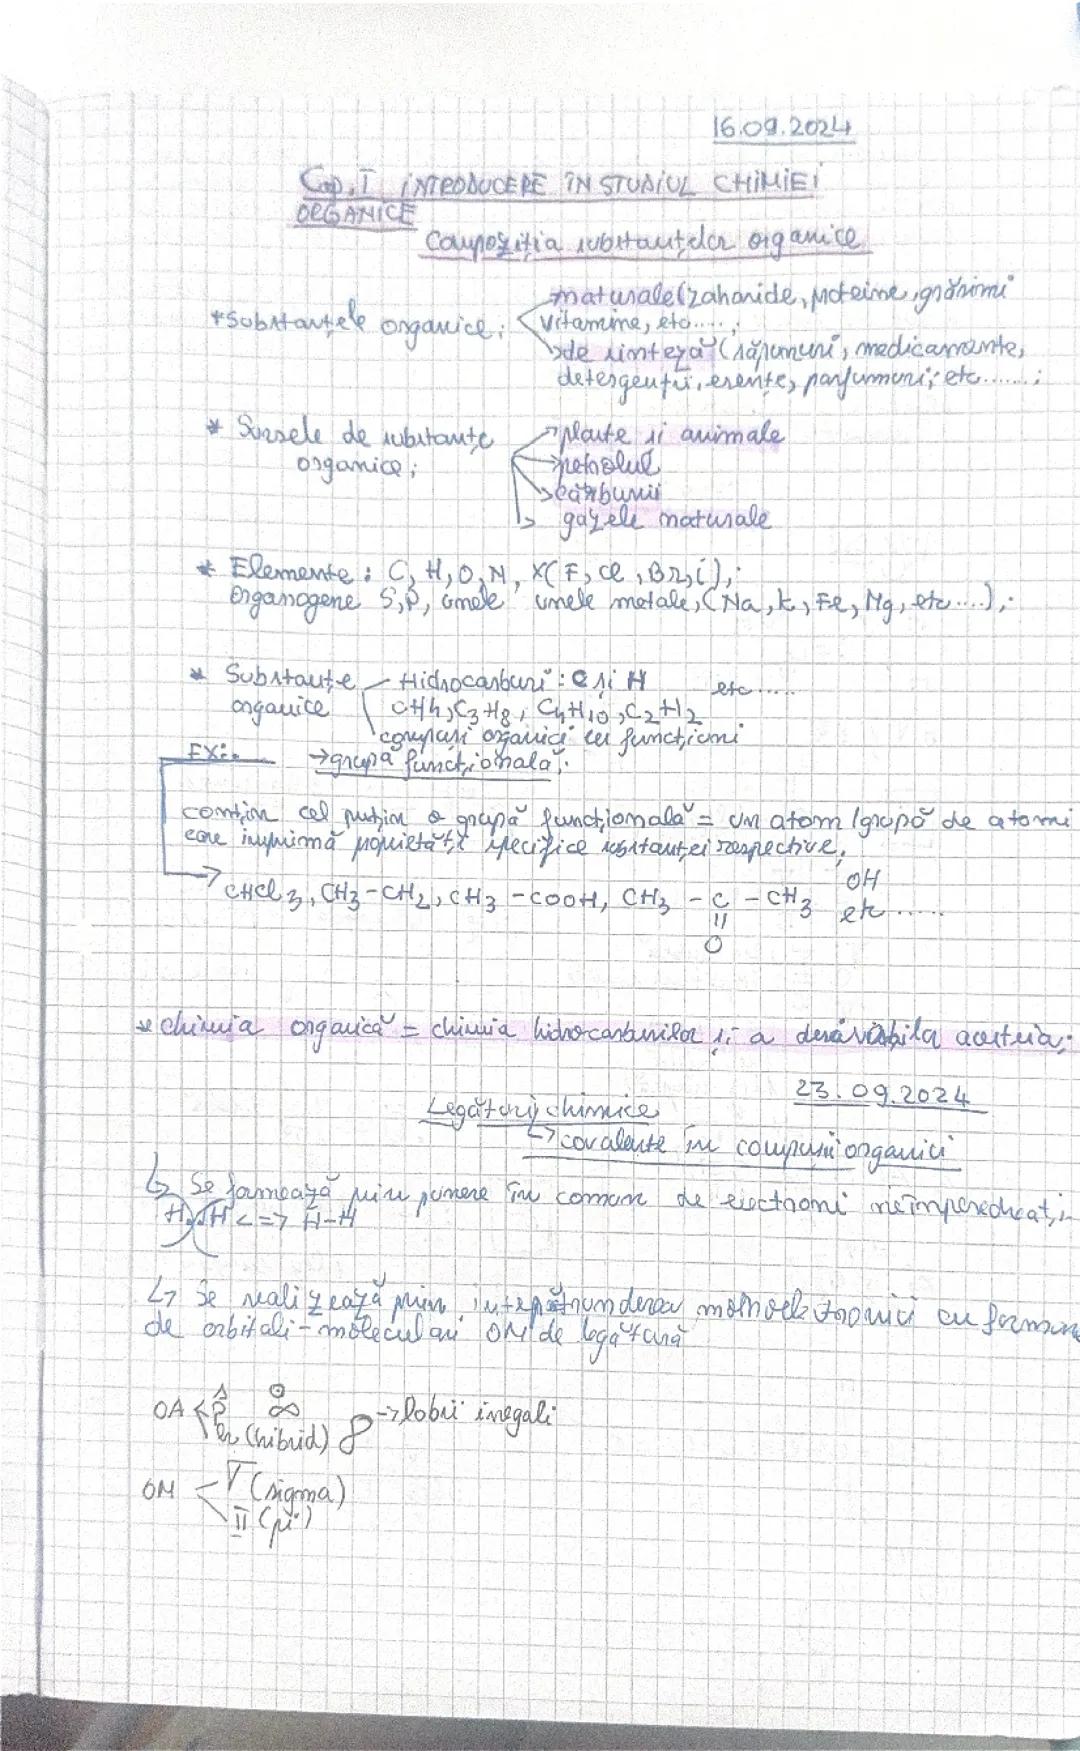 16.09.2024
Cap. I INTRODUCERE ÎN STUDIUL CHIMIEI
ORGANICE
Compoziția substanțelor organice
naturale (zaharide, proteine, grăsimi
*Substanțele organice: vitamine, etc....;
de sinteză (săpunuri, medicamente,
detergenții, esențe, parfumuri; etc......;
* Sursele de substanțe → plante și animale
organice; → petrolul
→ cărbunii
→ gazele naturale
* Elemente: C, H, O, N, X(F, Cl, Br, i),;
Organogene S, P, unele metale, (Na, K, Fe, Mg, etc....),.
* Substanțe Hidrocarburi: C și H etc.....
organice CH4, C3H8, C4H10, C2H2
compuși organici cu funcțiuni
EX: → grupă funcțională;
conțin cel puțin o grupă funcțională = un atom /grupă de atomi
care imprimă proprietăți specifice substanței respective,
→ CHCl3, CH3-CH2, CH3-COOH, CH3 - C - CH3 OH
etc......
||
O
* chimia organică = chimia hidrocarburilor și a acestuia;
23.09.2024
Legături chimice
↳ covalente în compuși organici
↳ Se formează prin punere în comun de electroni neîmperecheați
H H <=> H-H
↳ Se realizează prin cu
de orbitali-moleculari OM de legătură
OA s
p
(hibrid) → lobii inegali
OM (sigma)
π (pi)